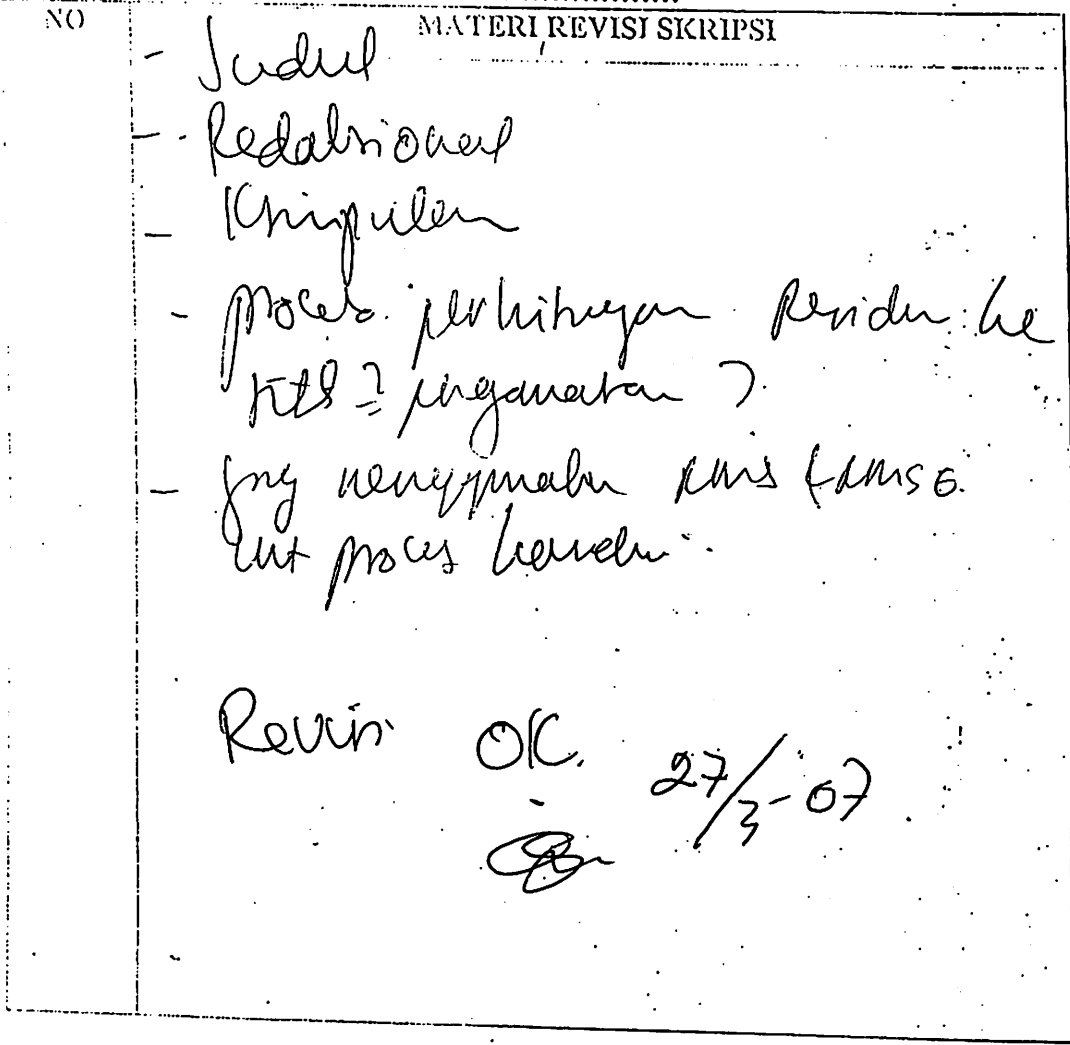 NO MATERI REVISI SKRIPSI
- Judul
- Redaksional
- Ksimpulan
- proses perhitungan Residu ke
? pengamatan ?
- yng menggunakan RMS & RMSE
unt proses
Revisi OK. 27/3-07